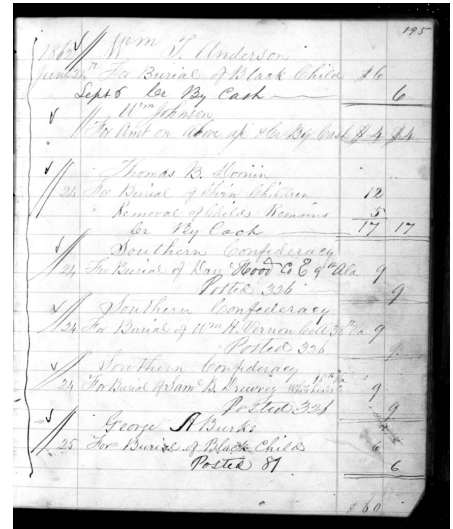 195
1862 Wm T. Anderson
June 24th For Burial of Black Child $6
Sept 5 Cr By Cash 6
Wm Johnson
For Amt on above & Cr By Cash $4 $4
Thomas B.
24 For Burial of Children 12
Removal of Childs Remains 5
Cr By Cash 17 17
Southern Confederacy
24 For Burial of Dan Hood Co E 9th Ala 9
Posted 326 9
Southern Confederacy
24 For Burial of Wm H. Vernon 9
Posted 326 9
Southern Confederacy
24 For Burial of Sam B. 9
Posted 326 9
George A Burks
25 For Burial of Black Child 6
Posted 81 6
$60